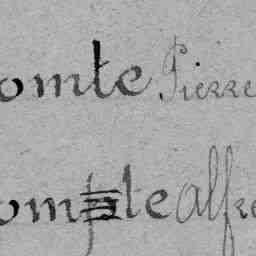 omte Pierre
omple Alfre